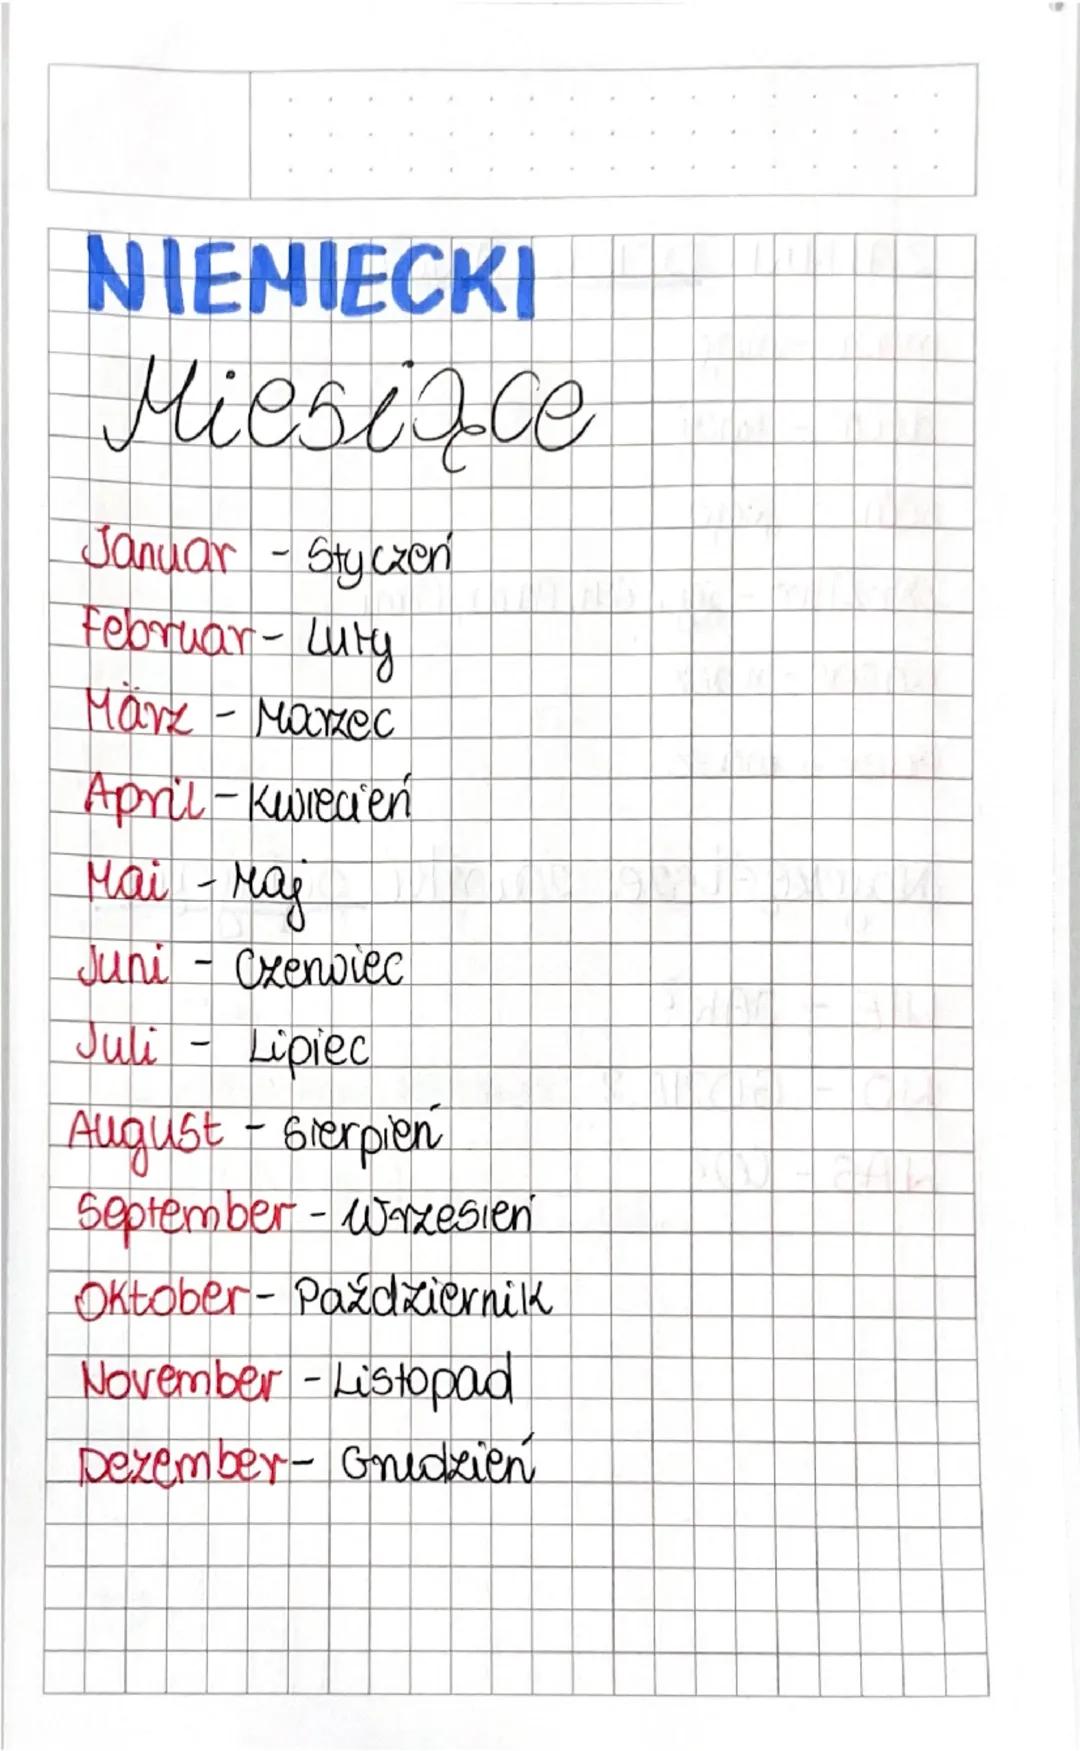 NIEMIECKI
Miesiące
Januar - Styczeń
Februar - Luty
März - Marzec
April - Kwiecień
Mai - Maj
Juni - Czerwiec
Juli - Lipiec
August - Sierpień
September - Wrzesień
Oktober - Październik
November - Listopad
Dezember - Grudzień